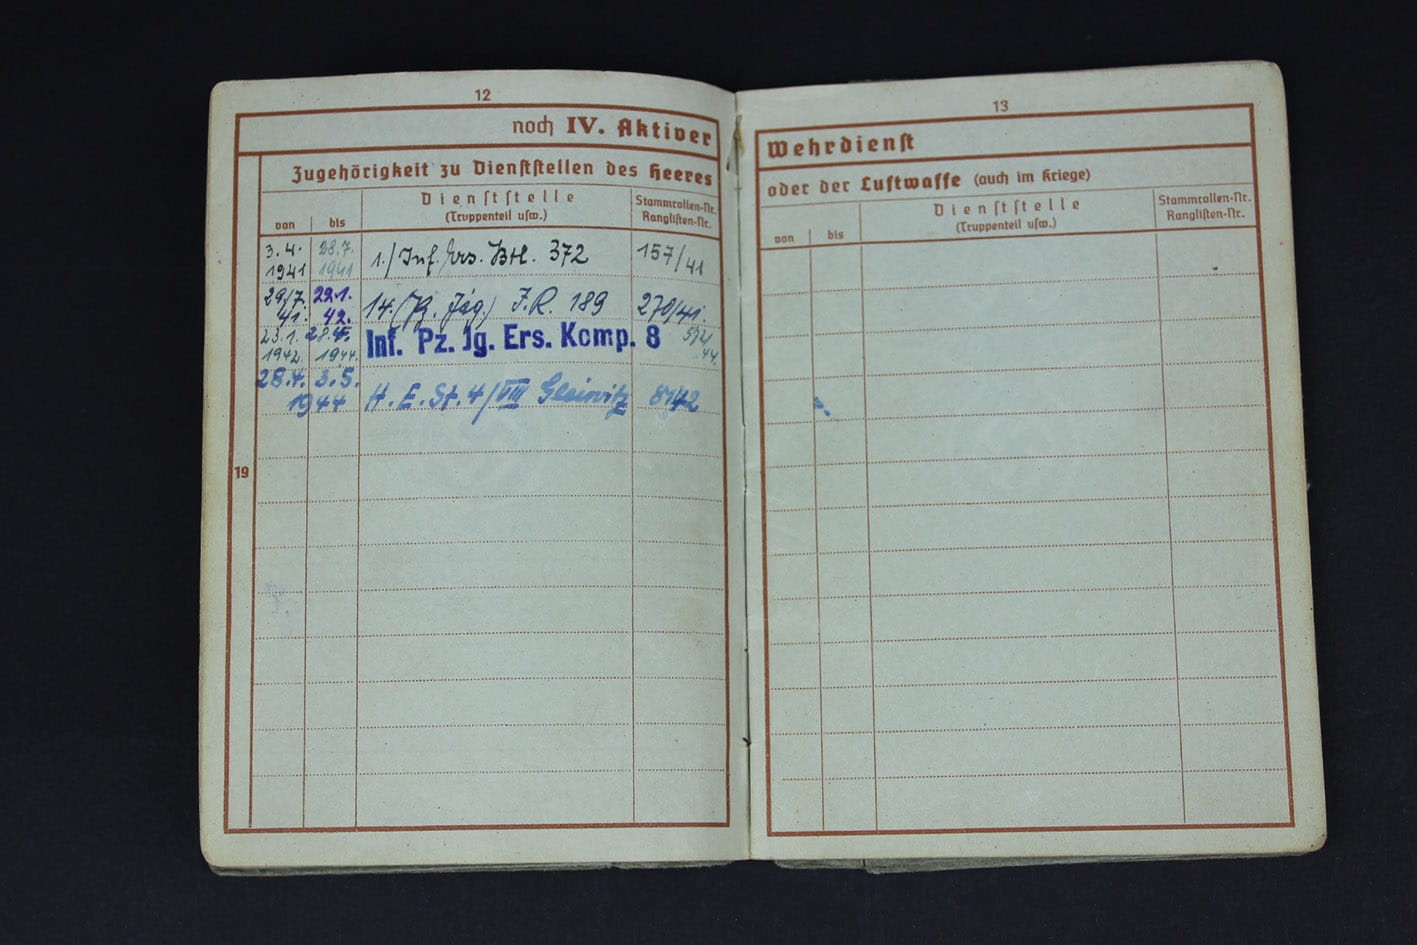 12
noch IV. Aktiver
Zugehörigkeit zu Dienststellen des Heeres
von bis Dienststelle (Truppenteil usw.) Stammrollen-Nr. Ranglisten-Nr.
3.4. 1941 28.7. 1941 1./Inf. Ers. Btl. 372 157/41
29/7. 41. 22.1. 42. 14. (Pz. Jäg.) I.R. 189 270/41.
23.1. 1942 28.4. 1944. Inf. Pz. Jg. Ers. Komp. 8
28.4. 3.5. 1944 H. E. St. 4/VIII Gleiwitz 8142
19
13
Wehrdienst
oder der Luftwaffe (auch im Kriege)
von bis Dienststelle (Truppenteil usw.) Stammrollen-Nr. Ranglisten-Nr.